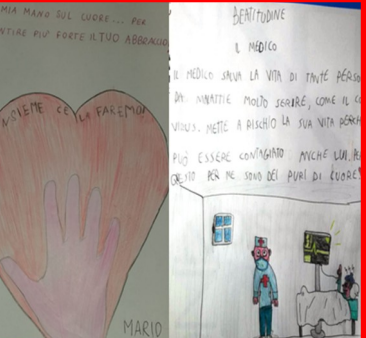 MIA MANO SUL CUORE... PER
NTIRE PIÙ FORTE IL TUO ABBRACCIO
NSIEME CE LA FAREMO!
MARIO
BEATITUDINE
IL MEDICO
IL MEDICO SALVA LA VITA DI TANTE PERSO
DA MALATTIE MOLTO SERIRE, COME IL CO
VIDUS. METTE A RISCHIO LA SUA VITA PERCH
PUÒ ESSERE CONTAGIATO ANCHE LUI. PE
QUESTO PER ME SONO DEI PURI DI CUORE!